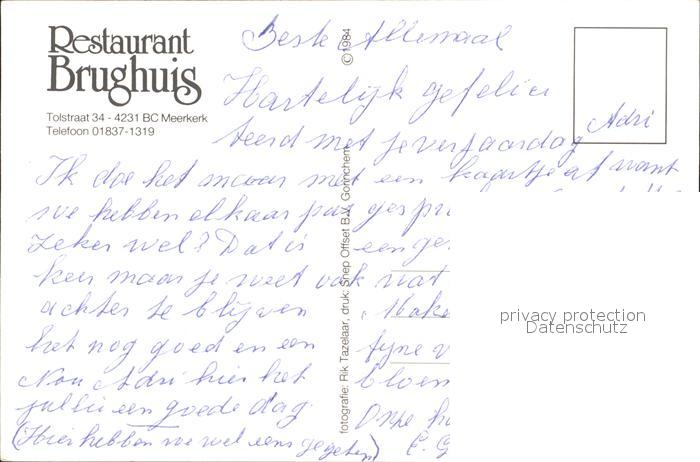 Restaurant
Brughuis
Tolstraat 34 - 4231 BC Meerkerk
Telefoon 01837-1319
©1984
fotografie: Rik Tazelaar, druk: Snep Offset B.V. Gorinchem
Beste Allemaal
Hartelijk gefelici
teerd met je verjaardag Adri
Ik doe het maar met een kaartje af want
we hebben elkaar pas gespr
zeker wel? Dat is een ge
keer maar je weet ook wat
achter te blijven Make
het nog goed en een fijne v
Nou Adri hier het bloem
jullie een goede dag. Onze h
(Hier hebben we wel eens gegeten)
privacy protection
Datenschutz